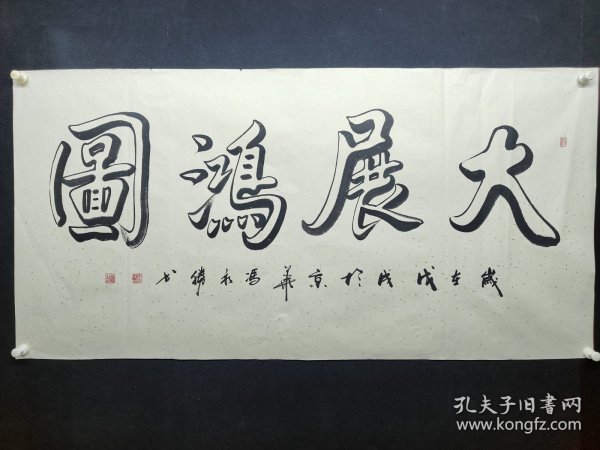 大展鴻圖
歲在戊戌於京華馮永勝书
孔夫子旧書网
www.kongfz.com